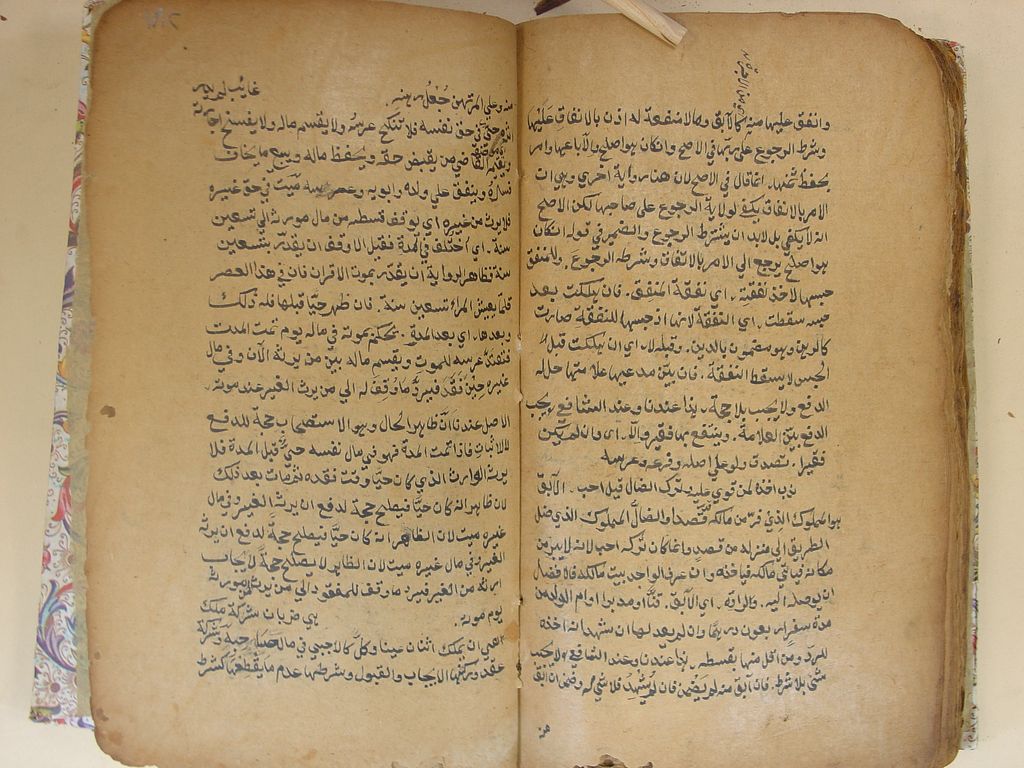 وانفق عليها منه كالآبق ومالا منفعة له اذن بالانفاق عليها
وشرط الرجوع على ربها في الاصح وانكان هو اصلح والا باعها وامر
بحفظ ثمنها. انما قال في الاصح لان هناك رواية اخرى وهي ان
الامر بالانفاق يكفي لولاية الرجوع على صاحبها لكن الاصح
انه لا يكفي بل لابد ان يشترط الرجوع والضمير في قوله انكان
هو اصلح يرجع الى الامر بالانفاق وشرط الرجوع. وللمنفق
حبسها لاخذ نفقته. اي نفقة المنفق. فان هلكت بعد
حبسه سقطت. اي النفقة لانها اذ حبسها للنفقة صارت
كالرهن وهو مضمون بالدين. وقبله لا. اي ان هلكت قبل
الحبس لا يسقط النفقة. فان بين مدعيها علامتها حل له
الدفع ولا يجب بلا حجة. هذا عندنا وعند الشافعي يجب
الدفع ببين العلامة. وينتفع بها فقيرا والا. اي وان لم يكن
فقيرا. تصدق ولو على اصله وفرعه وعرسه
ندب اخذه لمن قوي عليه وترك الضال قيل احب. الآبق
هو المملوك الذي فر من مالكه قصدا والضال المملوك الذي ضل
الطريق الى منزله من قصد وانما كان تركه احب لانه لا يبرح من
مكانه فيأتي مالكه فياخذه وان عرف الواجد بيت مالكه فالافضل
ان يوصله اليه. ولراده. اي الآبق. قنا او مدبرا او ام الولد من
مدة سفر اربعون درهما وان لم يعدلها ان شهد انه اخذه
للرد ومن اقل منها بقسطه. هذا عندنا وعند الشافعي لا يجب
شئ بلا شرط. فان آبق منه لم يضمن فان لم يشهد فلا شئ له وضمن ان آبق
منه
منه وعلى المرتهن جعل رهنه. غايب لم يدر
حي في حق نفسه فلا تنكح عرسه ولا يقسم ماله ولا يفسخ اجارته
ويقيم القاضي من يقبض حقه ويحفظ ماله ويبيع ما يخاف
فساده وينفق على ولده وابويه وعرسه ميت في حق غيره
فلا يرث من غيره اي يوقف قسطه من مال مورثه الى تسعين
سنة. اي اختلف في المدة فقيل الاوفق ان يقدر بتسعين
سنة فظاهر الرواية ان يقدر بموت الاقران فان في هذا العصر
قلما يعيش المرء تسعين سنة. فان ظهر حيا قبلها فله ذلك
وبعدها. اي بعد المدة. يحكم بموته في ماله يوم تمت المدت
فتعتد عرسه للموت ويقسم ماله بين من يرثه الآن وفي مال
غيره حين فقد فيرد ما وقف له الى من يرث الغير عند موته.
الاصل عندنا ان ظاهر الحال وهو الاستصحاب حجة للدفع
لا للاثبات فاذا تمت المدة فهو في مال نفسه حي قبل المدة فلا
يرث الوارث الذي كان حيا وقت فقده ثم مات بعد ذلك
لان ظاهر انه كان حيا فيصلح حجة لدفع ان يرثه الغير وفي مال
غيره ميت لان الظاهر انه كان حيا فيصلح حجة لدفع ان يرثه
الغير في مال غيره ميت لان الظاهر لا يصلح حجة لايجاب
ارثه من الغير فيرد ما وقف للمفقود الى من يرث مورثه
يوم موته. هي ضربان شركة ملك
هي ان يملك اثنان عينا وكل كالاجنبي في مال صاحبه وشركة
عقد وركنها الايجاب والقبول وشرطها عدم ما يقطعها كشرط